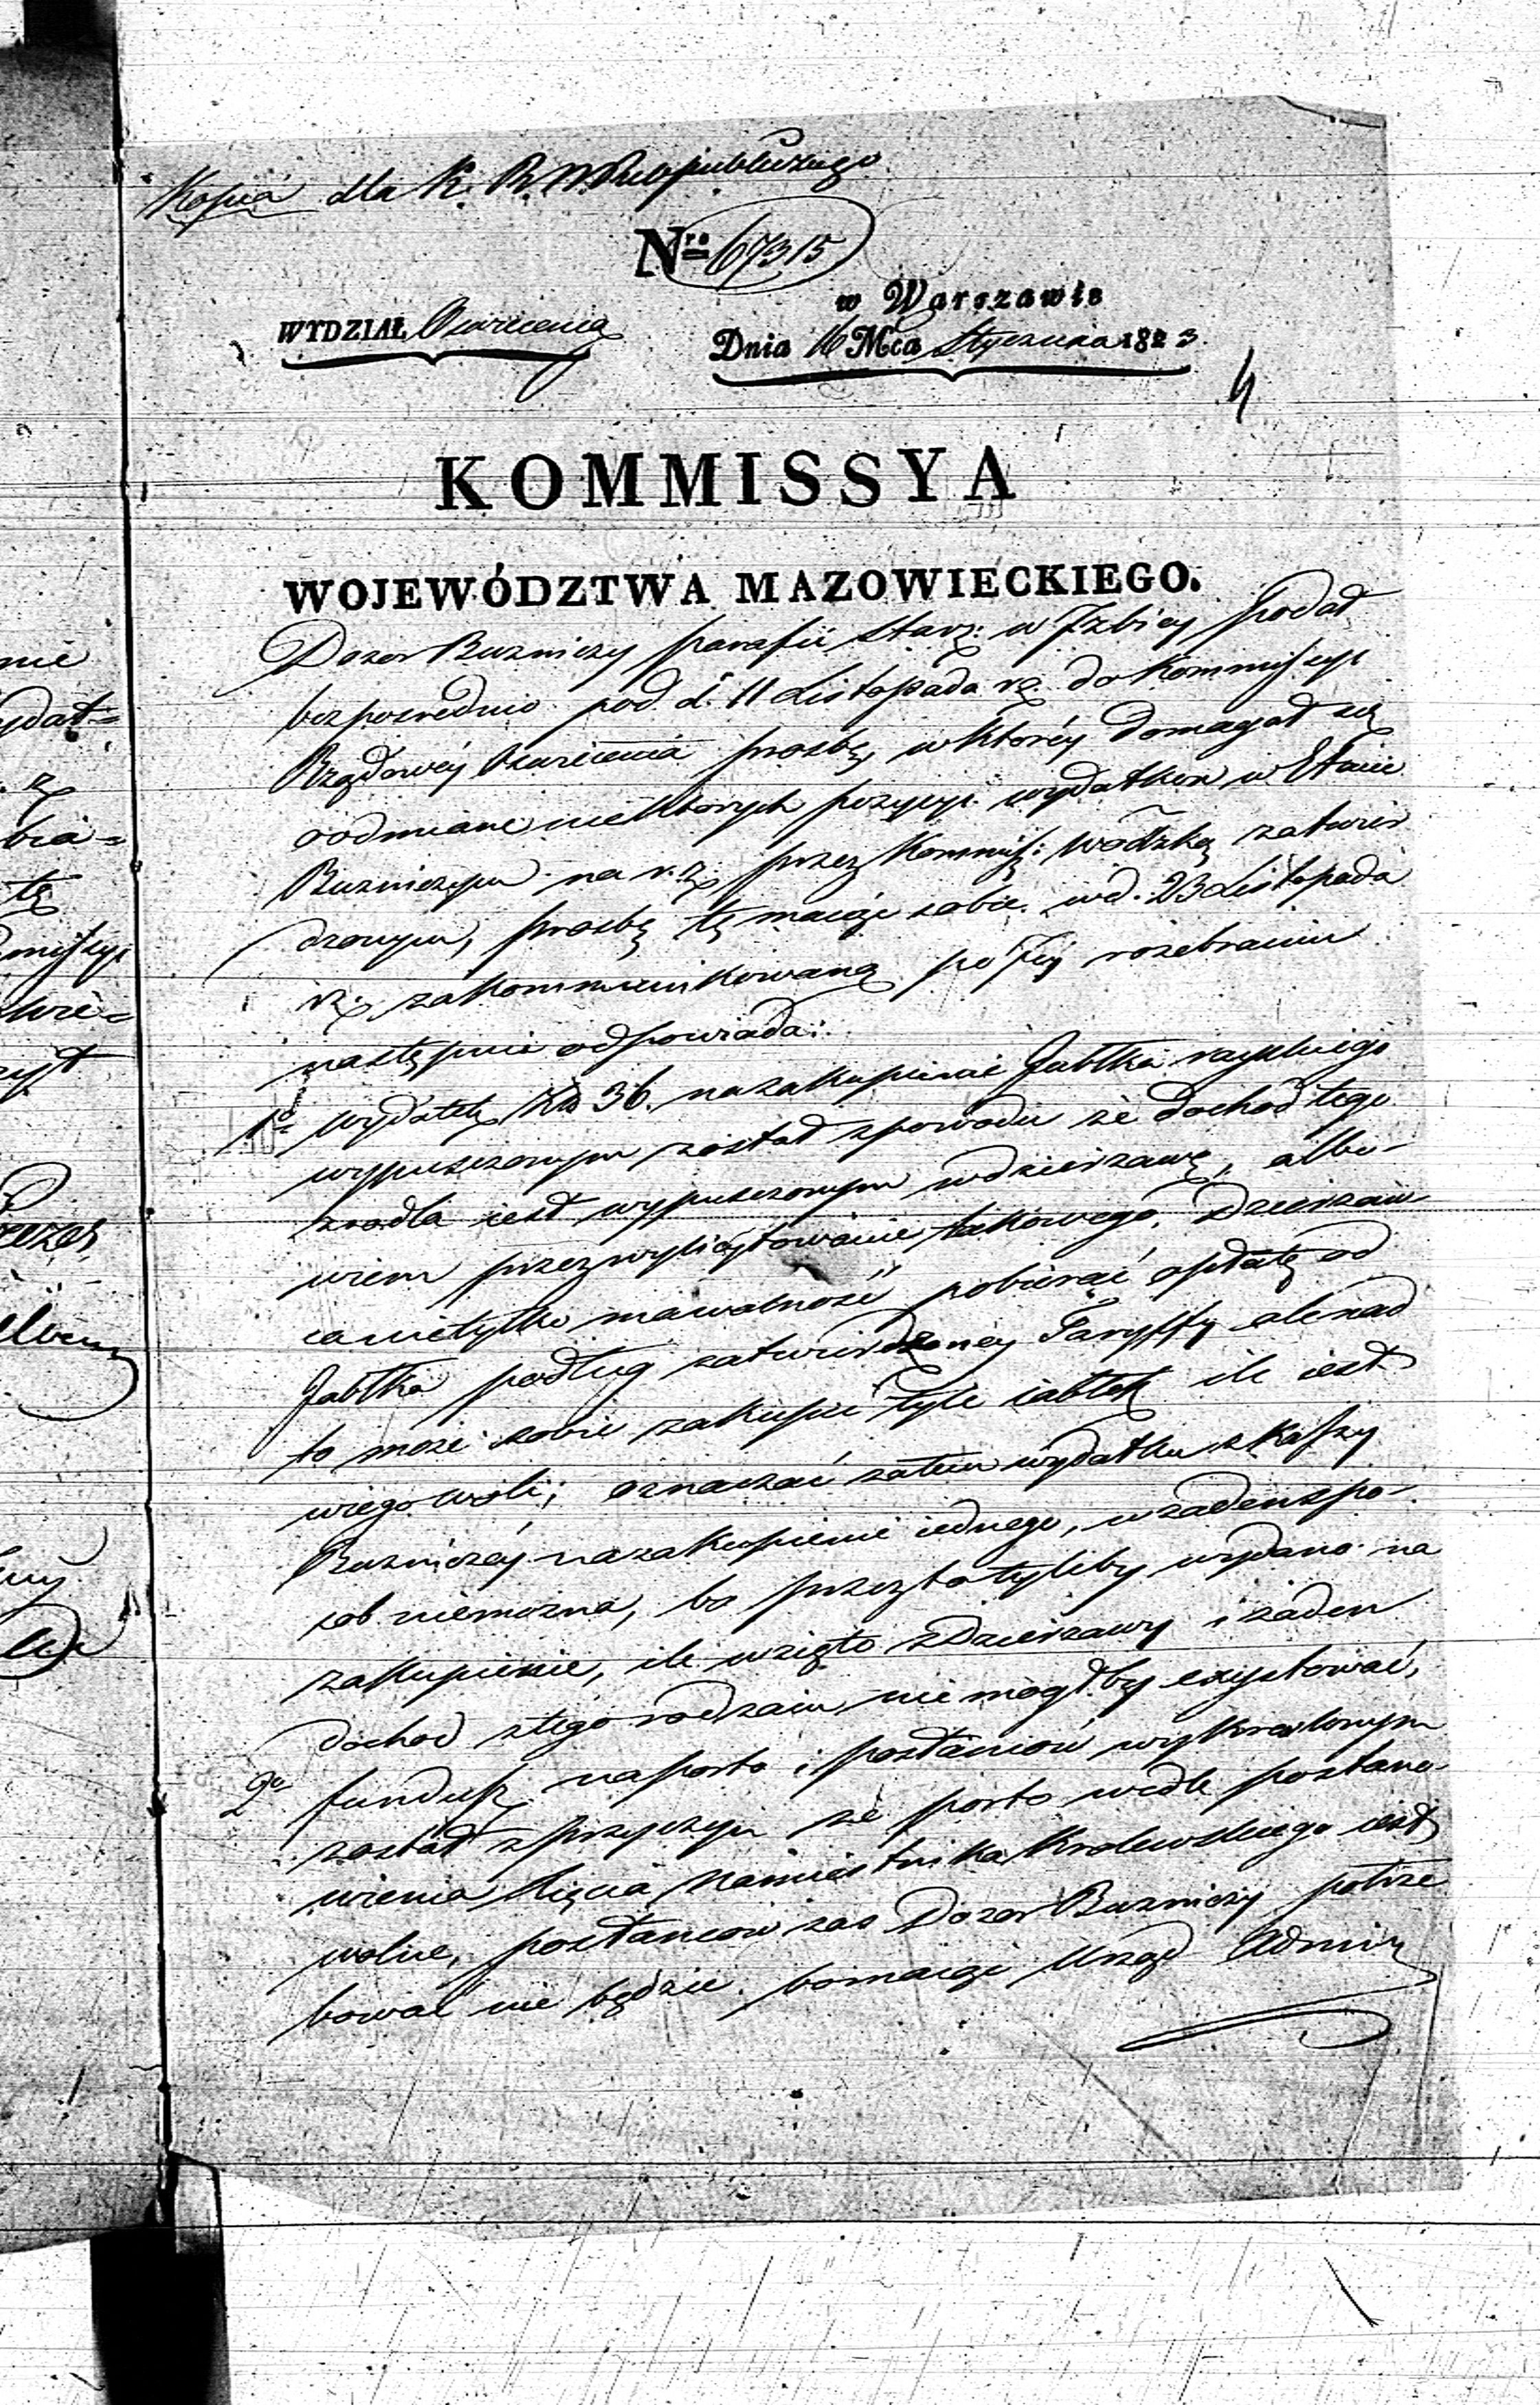 Kopia dla K. R. W. R. i O. publicznego
Nro 67315
w Warszawie
WYDZIAŁ Oswiecenia
Dnia 16 Mca Stycznia 1823.
4
KOMMISSYA
WOJEWÓDZTWA MAZOWIECKIEGO.
Dozor Bużniczy parafii Starz: w Izbicy podał
bezposrednio pod d. 11 Listopada r.z. do Kommissyi
Rządowéy Oswiecenia prosbę, w któréy domagał się
o odmianę niektorych pozycyi wydatkow w Etacie
Bużniczym na r.z. przez Kommiss: Wodzką zatwier
dzonym, prosbę tę maiąc sobie w d. 23 Listopada
r.z. zakommunikowaną po Jéy rozebraniu
następnie odpowiada:
1o wydatek Złp 36. na zakupienie Jabłka rayskiego
wypuszczonym został z powodu że dochod tego
zrodła iest wypuszczonym w dzierzawę, albo-
wiem przez wylicytowanie takowego, Dzierzaw-
ca nietylko ma wolność pobierać opłatę od
Jabłka podług zatwierdzoney Taryffy ale nad
to może sobie zakupić tyle iabłek ile iest
w iego woli; oznaczać zatem wydatku z Kassy
Bużniczéy na zakupienie iednego, w żaden spo-
sob niemożna, bo przez to tyleby wydano na
zakupienie, ile wzięto z Dzierzawy i żaden
dochod z tego rodzaiu nie mógłby exystować,
2o fundusz na porto i posłańców wykreslonym
został z przyczyn że porto wedle postano-
wienia Xięcia Namiestnika Krolewskiego iest
wolne, posłańcow zas Dozor Bużniczy potrze
bował nie będzie bo maiąc Urząd Admin